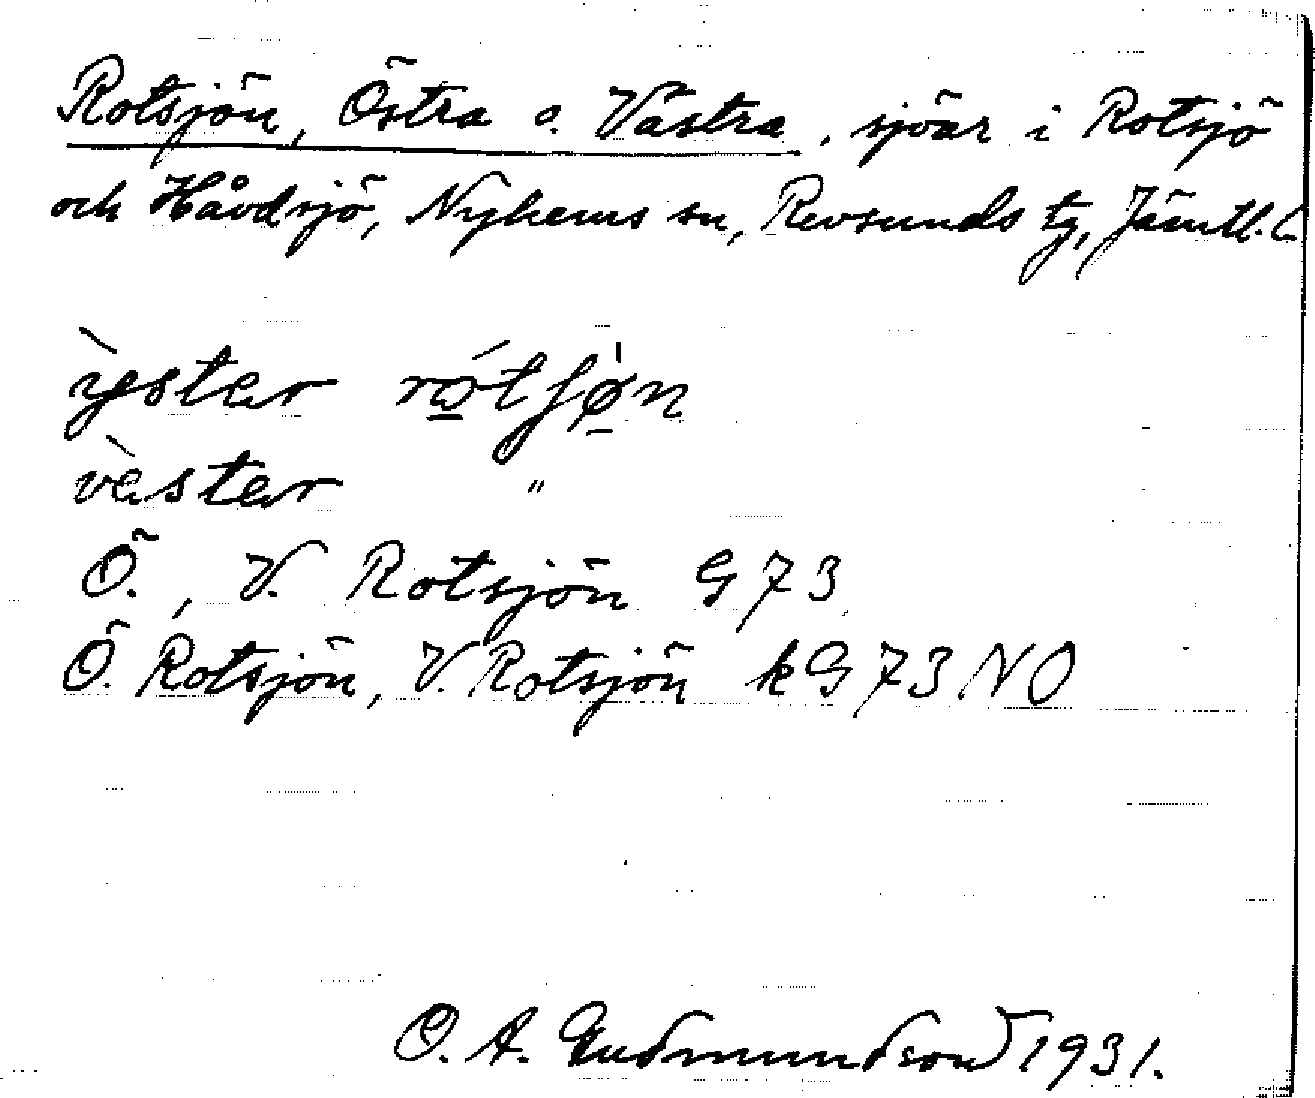 Rotsjön, Östra o. Västra, sjöar i Rotsjö
och Håvdsjö, Nyhems sn, Revsunds tg, Jämtl. l.
ỳster rótʃø̲n
vèster "
Ö., V. Rotsjön G73
Ö. Rotsjön, V. Rotsjön kG73NO
O. A. Gudmundson 1931.